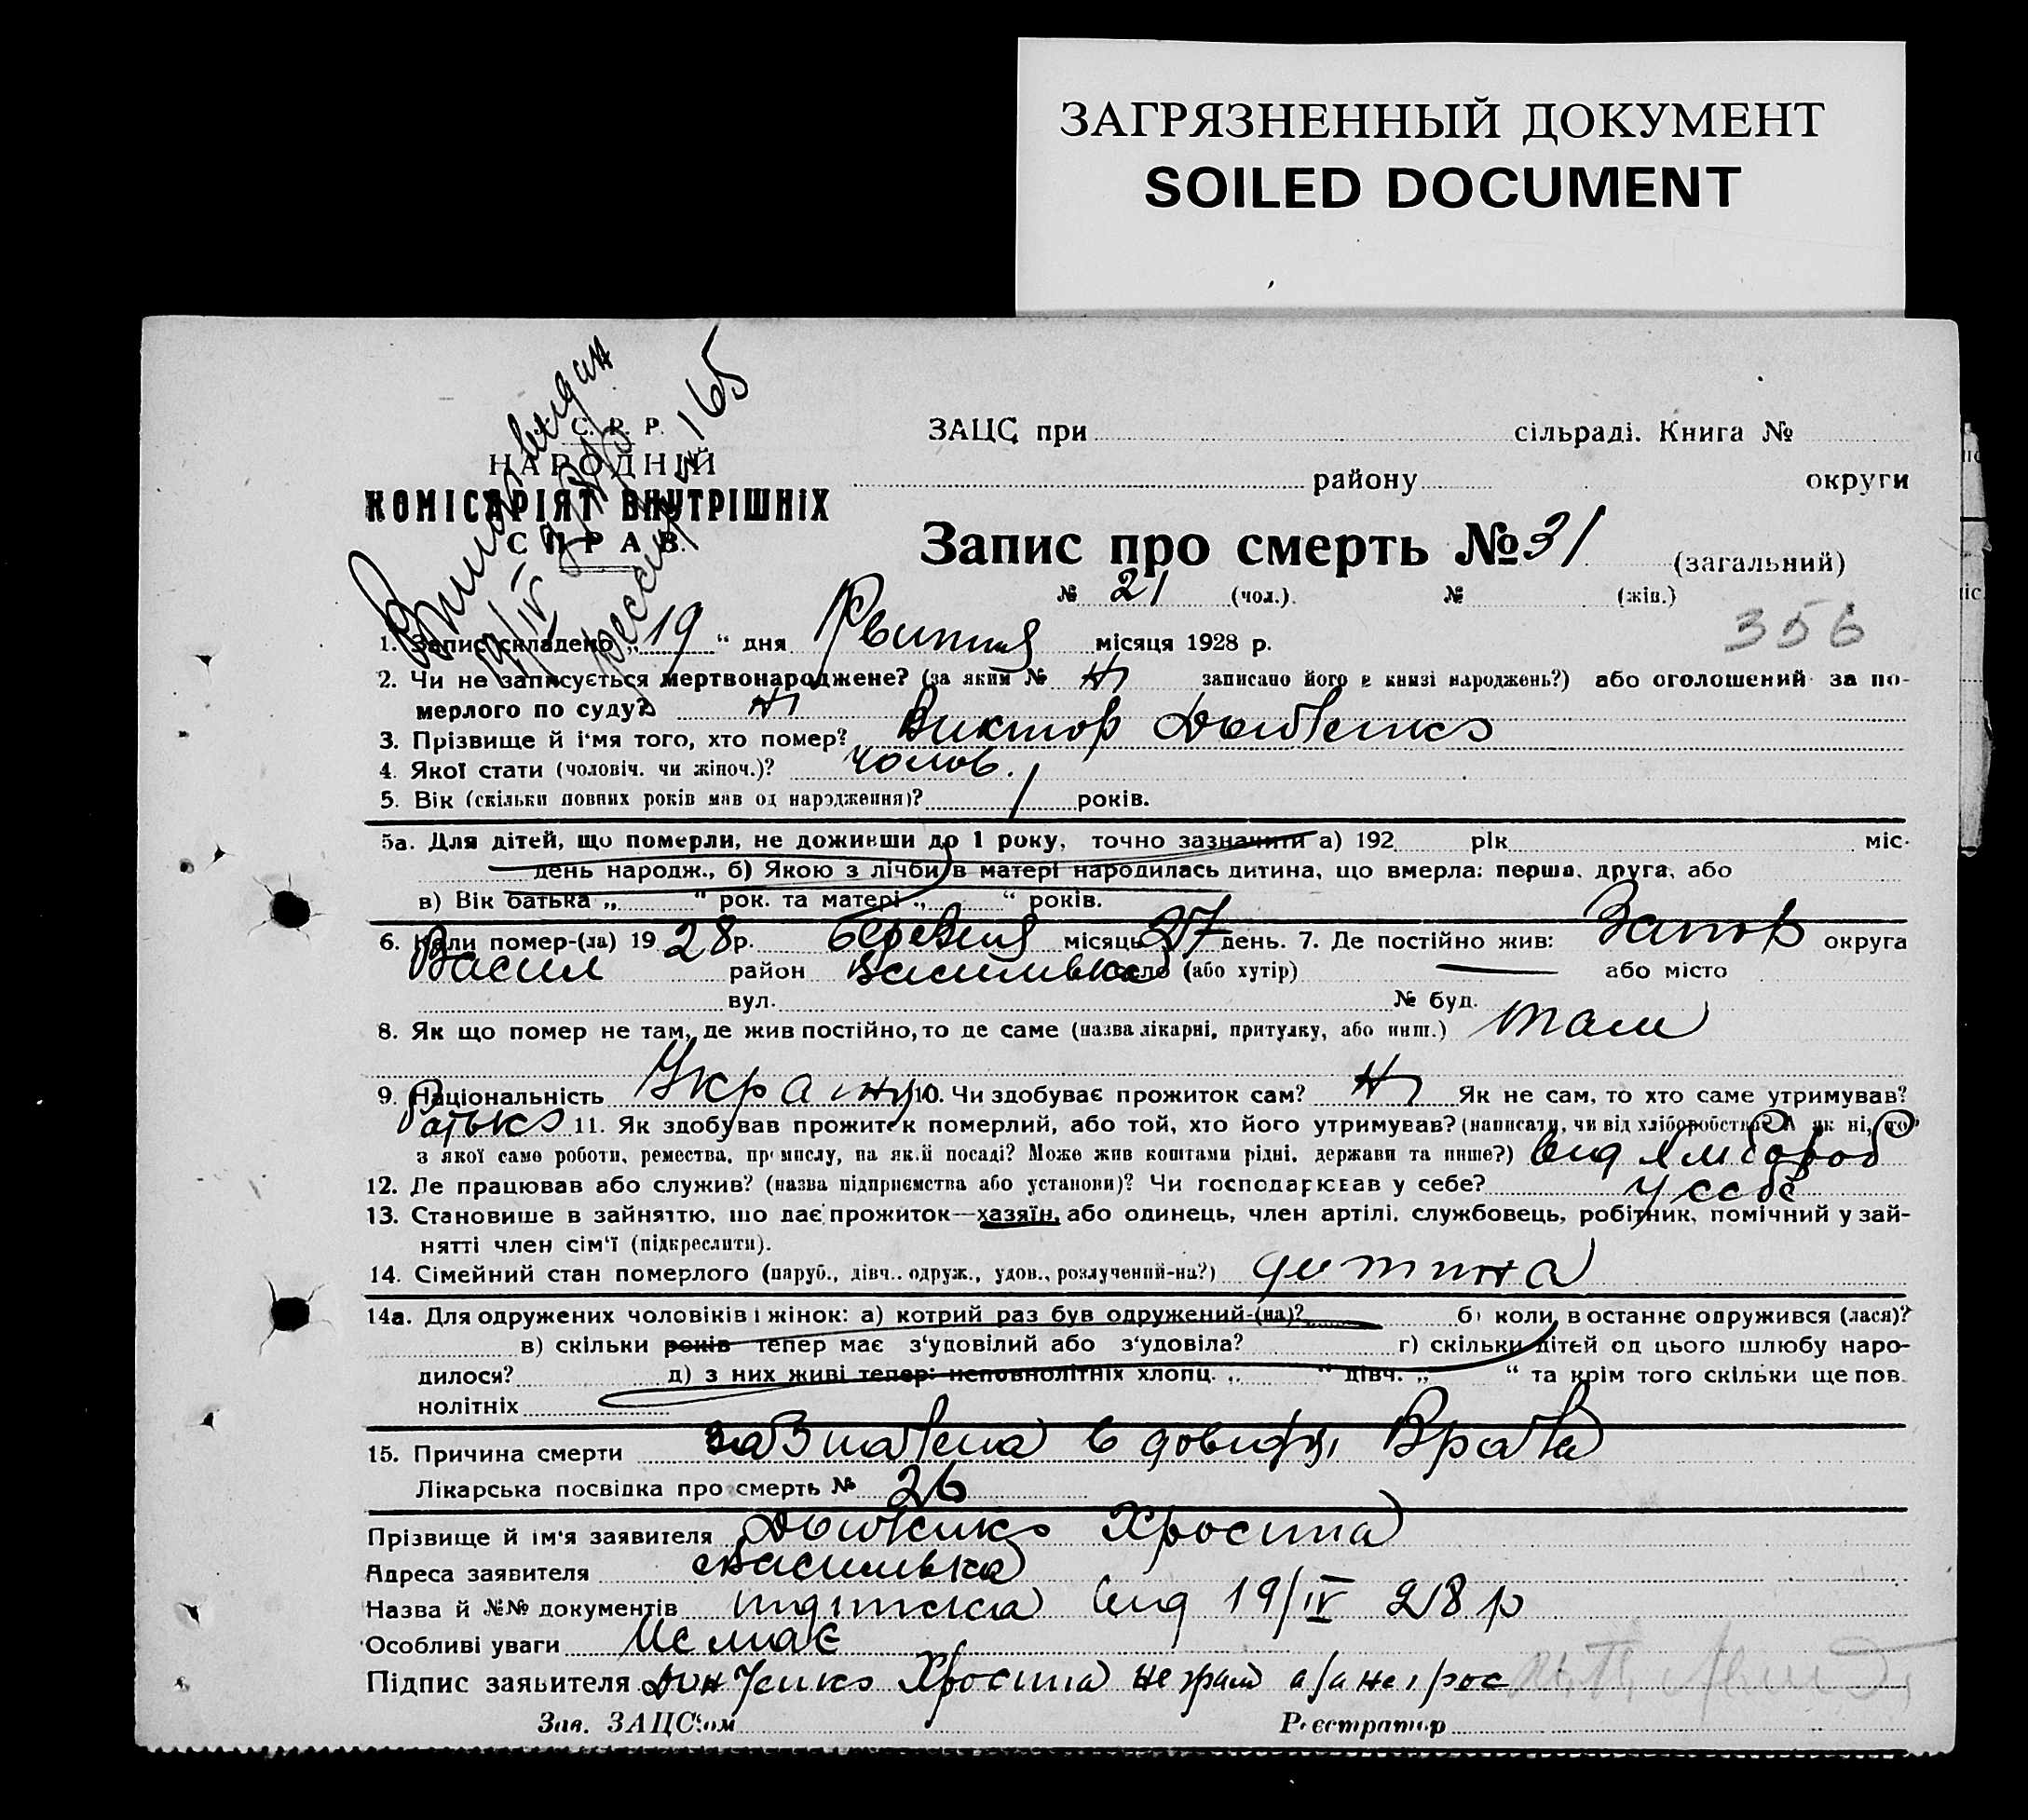 ЗАГРЯЗНЕННЫЙ ДОКУМЕНТ
SOILED DOCUMENT
С. Р. Р.
НАРОДНІЙ
КОМІСАРІЯТ ВНУТРІШНІХ
СПРАВ.
165
ЗАЦС при сільраді. Книга №
району округи
Запис про смерть № 31 (загальний)
№ 21 (чол.). № (жін.)
356
1. Запис складено „ 19 “ дня Квитня місяця 1928 р.
2. Чи не записується мертвонароджене? (за яким № Ні записано його в книзі народжень?) або оголошений за по-
мерлого по суду? Ні
3. Прізвище й і'мя того, хто помер? Виктор
4. Якої стати (чоловіч. чи жіноч.)? чолов.
5. Вік (скільки повних років мав од народження)? 1 років.
5а. Для дітей, що померли, не доживши до 1 року, точно зазначити а) 192 рік міс.
день народж., б) Якою з лічби в матері народилась дитина, що вмерла: перша, друга, або
в) Вік батька „ “ рок. та матері „ “ років.
6. Коли помер-(ла) 19 28 р. березня місяць 27 день. 7. Де постійно жив: Запор округа
Васил район Василивка село (або хутір) — або місто
вул. № буд.
8. Як що помер не там, де жив постійно, то де саме (назва лікарні, притулку, або инш.) там
9. Національність Украінц 10. Чи здобуває прожиток сам? Ні Як не сам, то хто саме утримував?
батько 11. Як здобував прожиток померлий, або той, хто його утримував? (написати, чи від хліборобства? А як ні, то
з якої саме роботи, ремества, промислу, на якій посаді? Може жив коштами рідні, держави та инше?) вид хлібороб
12. Де працював або служив? (назва підприємства або установи)? Чи господарював у себе? у себе
13. Становище в зайняттю, що дає прожиток—хазяїн, або одинець, член артілі, службовець, робітник, помічний у зай-
нятті член сім'ї (підкреслити).
14. Сімейний стан померлого (паруб., дівч., одруж., удов., розлучений-на?) дитина
14а. Для одружених чоловіків і жінок: а) котрий раз був одружений-(на)? б) коли в останнє одружився (лася)?
в) скільки років тепер має з'удовілий або з'удовіла? г) скільки дітей од цього шлюбу наро-
дилося? д) з них живі тепер: неповнолітніх хлопц. „ “ дівч. „ “ та крім того скільки ще пов-
нолітніх
15. Причина смерти зазначена в довидці Врача
Лікарська посвідка про смерть № 26
Прізвище й ім'я заявителя Хросина
Адреса заявителя Василивка
Назва й №№ документів вид 19/IV 28 р
Особливі уваги Немає
Підпис заявителя Хросина
Зав. ЗАЦС'ом Реєстратор